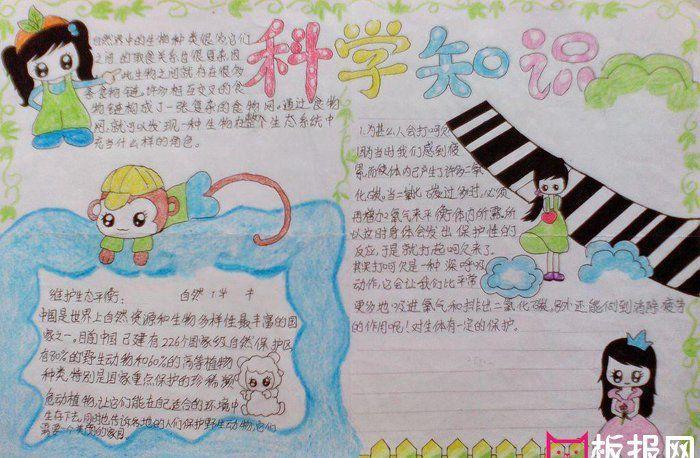 科学知识
自然界中的生物种类很多它们
之间的取食关系自很复杂因
此生物之间就存在很多
条食物链,许多相互交叉的食
物链构成了一张复杂的食物网。通过食物
网,就可以发现一种生物在整个生态系统中
充当什么样的角色。
1.为甚么人会打呵欠
因为当时我们感到疲
累,而使体内已产生了许多二氧
化碳,当二氧化碳过多时,必须
再增加氧气来平衡体内所需,所
以这时身体会发出保护性的
反应,于是就打起呵欠来了。
其实打呵欠是一种深呼吸
动作,它会让我们比平常
更多地吸进氧气和排出二氧化碳,
还能做到消除疲劳
的作用呢!对生体有一定的保护。
维护生态平衡:
自然
中国是世界上自然资源和生物多样性最丰富的国
家之一。目前中国已建有226个国家级自然保护区
有80%的野生动物和60%的高等植物
种类,特别是国家重点保护的珍稀濒
危动植物,让它们能在自己适合的环境中
生存下去。同时也告诉各地的人们保护野生动物,它们
需要一个美丽的家园。
板报网